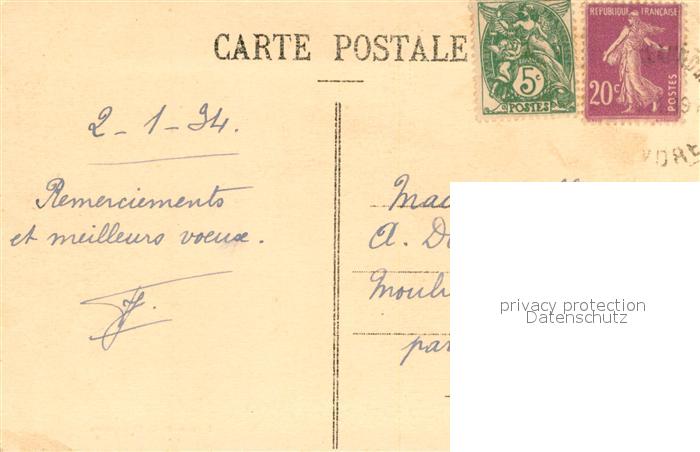 CARTE POSTALE
5c
POSTES
RÉPUBLIQUE FRANÇAISE
20c
POSTES
2-1-34.
Remerciements
et meilleurs voeux.
A.
privacy protection
Datenschutz